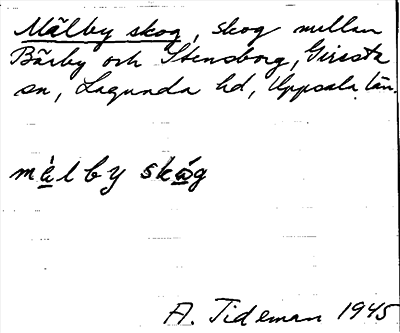 Mälby skog, skog mellan
Bärby och Stensborg, Giresta
sn, Lagunda hd, Uppsala län.
mä̀lby skó̠g
A. Tideman 1945